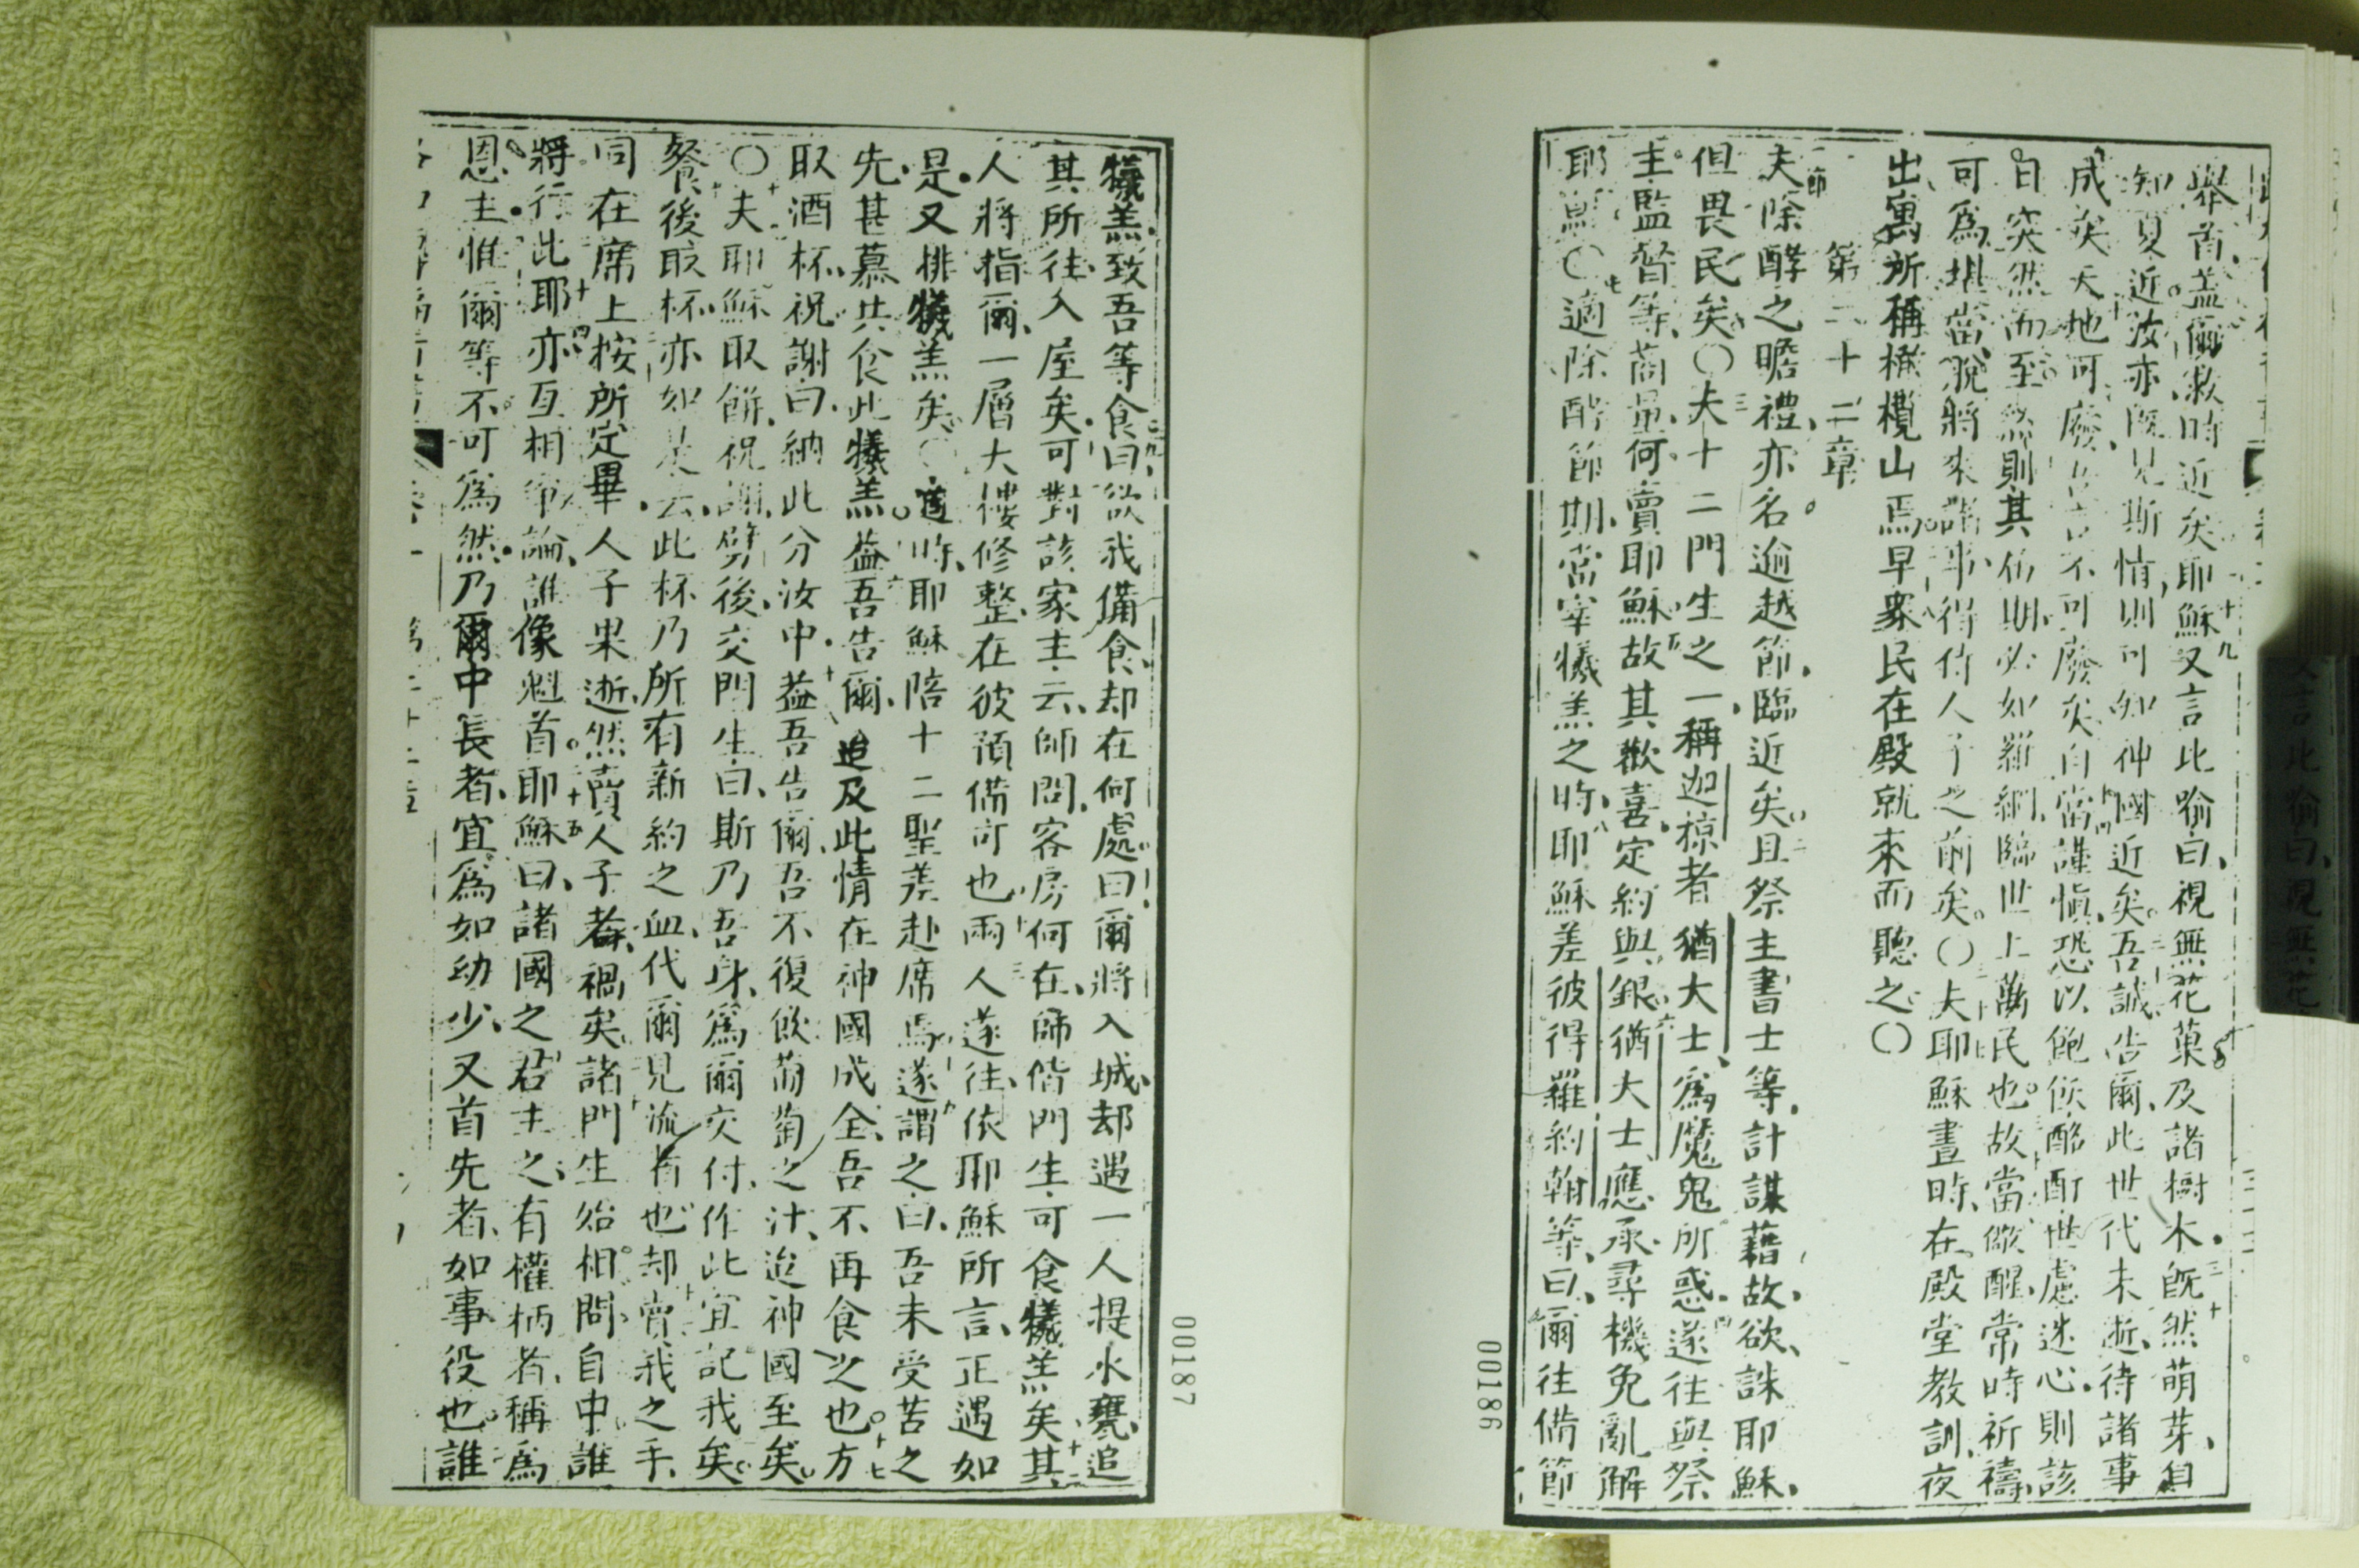 舉首盖爾救時近矣耶穌又言此喻曰視無花菓及諸樹木既然萌芽自
知夏近汝亦既見斯情則可知神國近矣吾誠告爾此世代未逝待諸事
成矣天地可廢吾言不可廢矣自當謹慎恐以飽飫酩酊世慮迷心則該
日突然而至然則其伤期必如羅網臨世上萬民也故當儆醒常時祈禱
可為堪當脫將來諸事得侍人子之前矣〇夫耶穌晝時在殿堂教訓夜
出寓所稱橄欖山焉早衆民在殿就來而聽之〇
第二十二章
夫除酵之瞻禮亦名逾越節臨近矣且祭主書士等計謀藉故欲誅耶穌
但畏民矣〇夫十二門生之一稱迦掠者猶大士為魔鬼所惑遂往與祭
主監督等商量何賣耶穌故其歡喜定約與銀猶大士應承尋機免亂解
耶穌〇適除酵節期當宰犧羔之時耶穌差彼得羅約翰等曰爾往備節
00186
犧羔致吾等食曰欲我備食却在何處曰爾將入城却遇一人提水甕追
其所往入屋矣可對該家主云師問客房何在師偕門生可食犧羔矣其
人將指爾一層大樓修整在彼預備可也兩人遂往依耶穌所言正遇如
是又排犧羔矣〇當時耶穌陪十二聖差赴席焉遂謂之曰吾未受苦之
先甚慕共食此犧羔葢吾告爾迨及此情在神國成全吾不再食之也方
取酒杯祝謝曰納此分汝中葢吾告爾吾不復飲葡萄之汁迨神國至矣
〇夫耶穌取餅祝謝劈後交門生曰斯乃吾身為爾交付作此宜記我矣
餐後取杯亦如是云此杯乃所有新約之血代爾見流者也却賣我之手
同在席上按所定畢人子果逝然賣人子者禍矣諸門生始相問自中誰
將行此耶亦互相爭論誰像魁首耶穌曰諸國之君主之有權柄者稱為
恩主惟爾等不可為然乃爾中長者宜為如幼少又首先者如事役也誰
00187